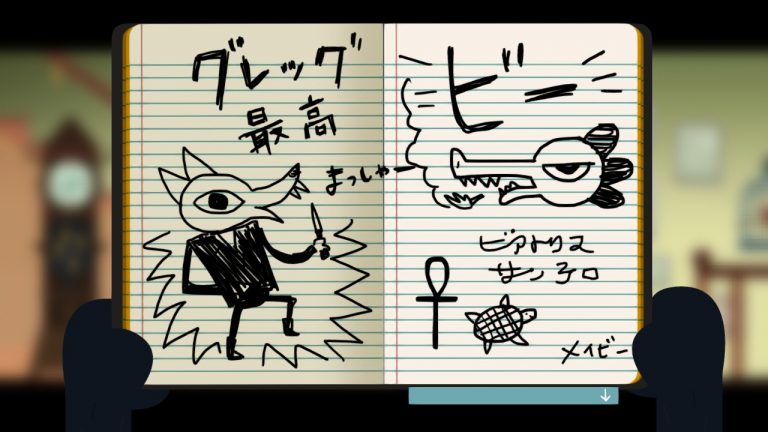 グレッグ
最高
まっしゃー
ビー
ビアトリス
サンテロ
メイビー